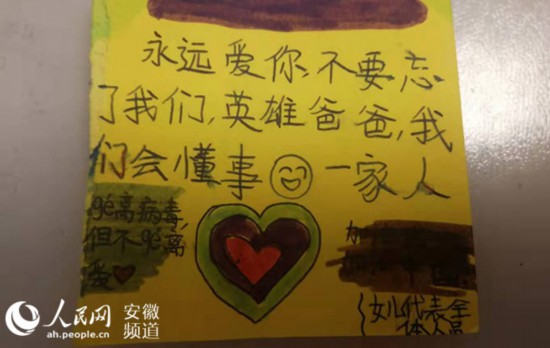 永远爱你,不要忘
了我们,英雄爸爸,我
们会懂事 一家人
gé离病毒,
但不gé离
爱
加
女儿代表全
体人员
人民网 安徽频道
ah.people.cn